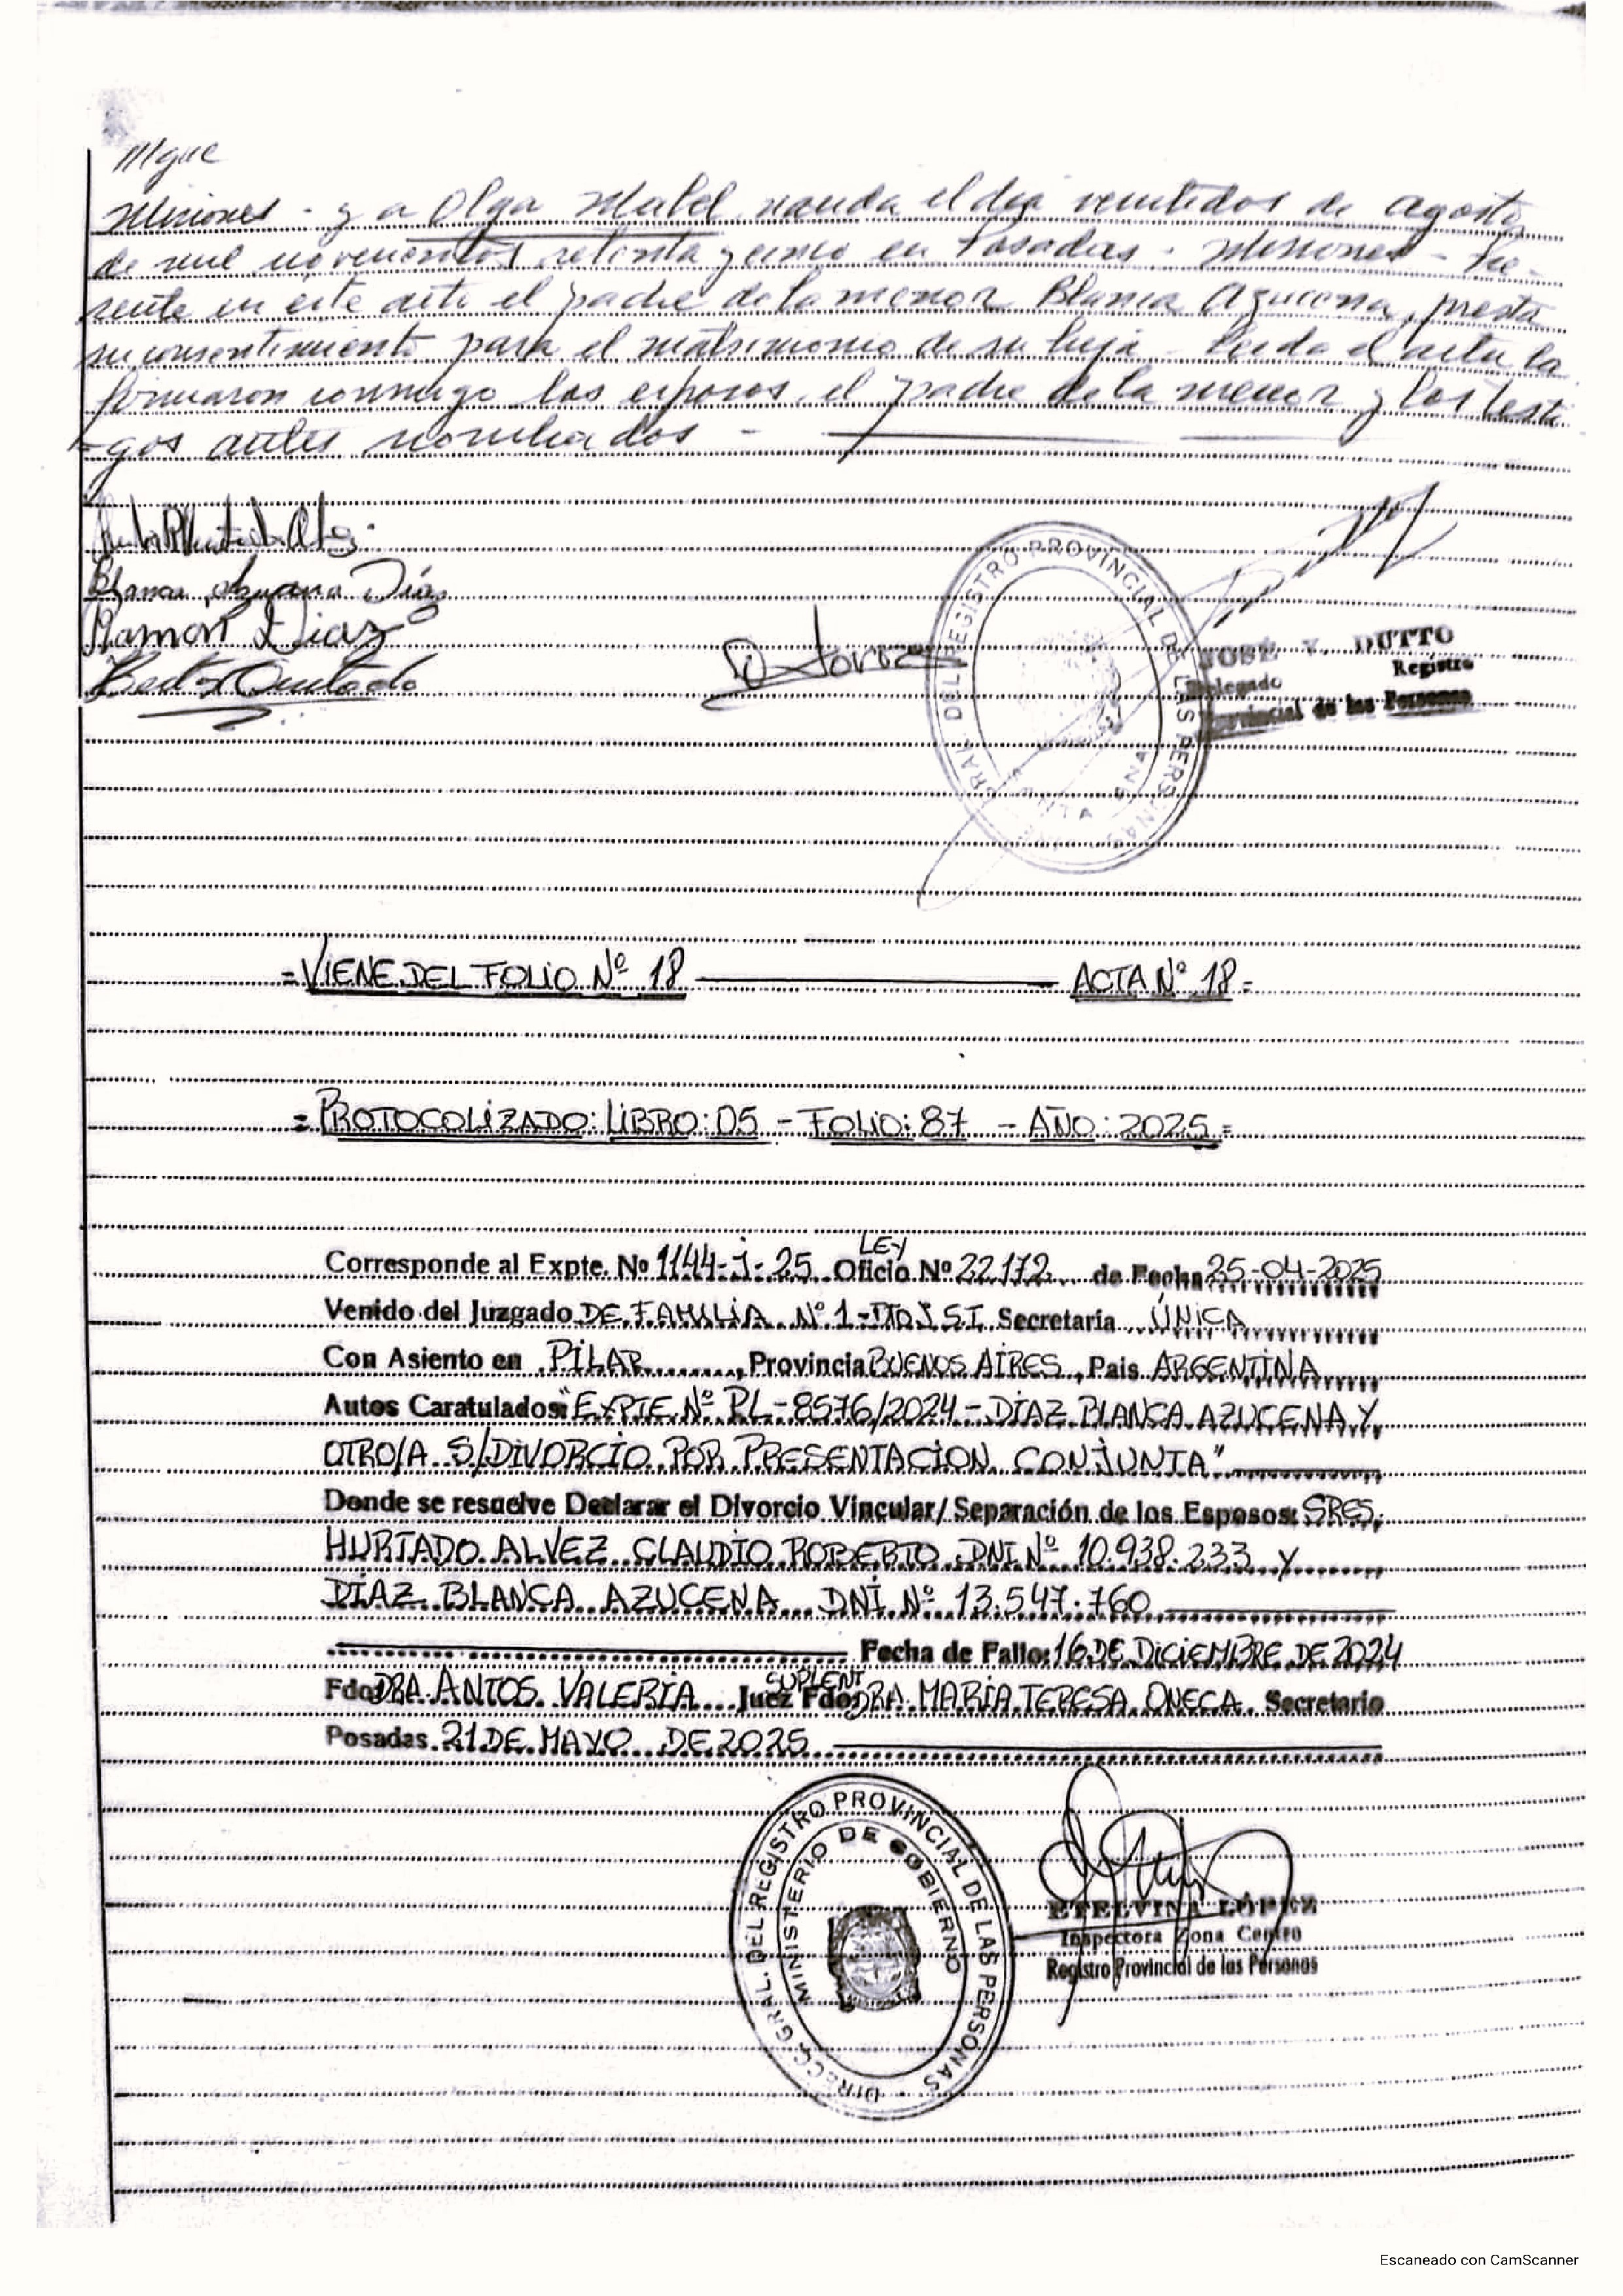 Misiones - y a Olga Mabel nacida el día veintidos de agosto
de mil novecientos setenta y cinco en Posadas - Misiones - Pre-
sente en éste acto el padre de la menor Blanca Azucena, presta
su consentimiento para el matrimonio de su hija - Leida el acta la
firmaron conmigo los esposos, el padre de la menor y los testi
-gos antes nombrados -
Blanca Azucena Díaz
Ramón Diaz
DIREC. GRAL. DEL REGISTRO PROVINCIAL DE LAS PERSONAS
SANTA ANA
JOSÉ V. DUTTO
Delegado Registro
Provincial de las Personas
= VIENE DEL FOLIO Nº 18 ACTA Nº 18 =
= PROTOCOLIZADO: LIBRO: 05 - FOLIO: 87 - AÑO: 2025 =
LEY
Corresponde al Expte. Nº 1144-J-25 Oficio Nº 22.172 de Fecha 25-04-2025
Venido del Juzgado DE FAMILIA Nº 1 - DTO J S.I. Secretaria ÚNICA
Con Asiento en PILAR, Provincia BUENOS AIRES, Pais ARGENTINA
Autos Caratulados: "EXPTE Nº PL-8576/2024 - DÍAZ BLANCA AZUCENA Y
OTRO/A S/DIVORCIO POR PRESENTACION CONJUNTA"
Donde se resuelve Declarar el Divorcio Vincular/ Separación de los Esposos: SRES.
HURTADO ALVEZ CLAUDIO ROBERTO DNI Nº 10.938.233 Y
DÍAZ BLANCA AZUCENA DNI Nº 13.547.760
Fecha de Fallo: 16 DE DICIEMBRE DE 2024
SUPLENT
Fdo DRA. ANTOS VALERIA Juez Fdo: DRA. MARÍA TERESA ONECA Secretario
Posadas 21 DE MAYO DE 2025
DIRECC. GRAL. DEL REGISTRO PROVINCIAL DE LAS PERSONAS
MINISTERIO DE GOBIERNO
ETELVINA LÓPEZ
Inspectora Zona Centro
Registro Provincial de las Personas
Escaneado con CamScanner